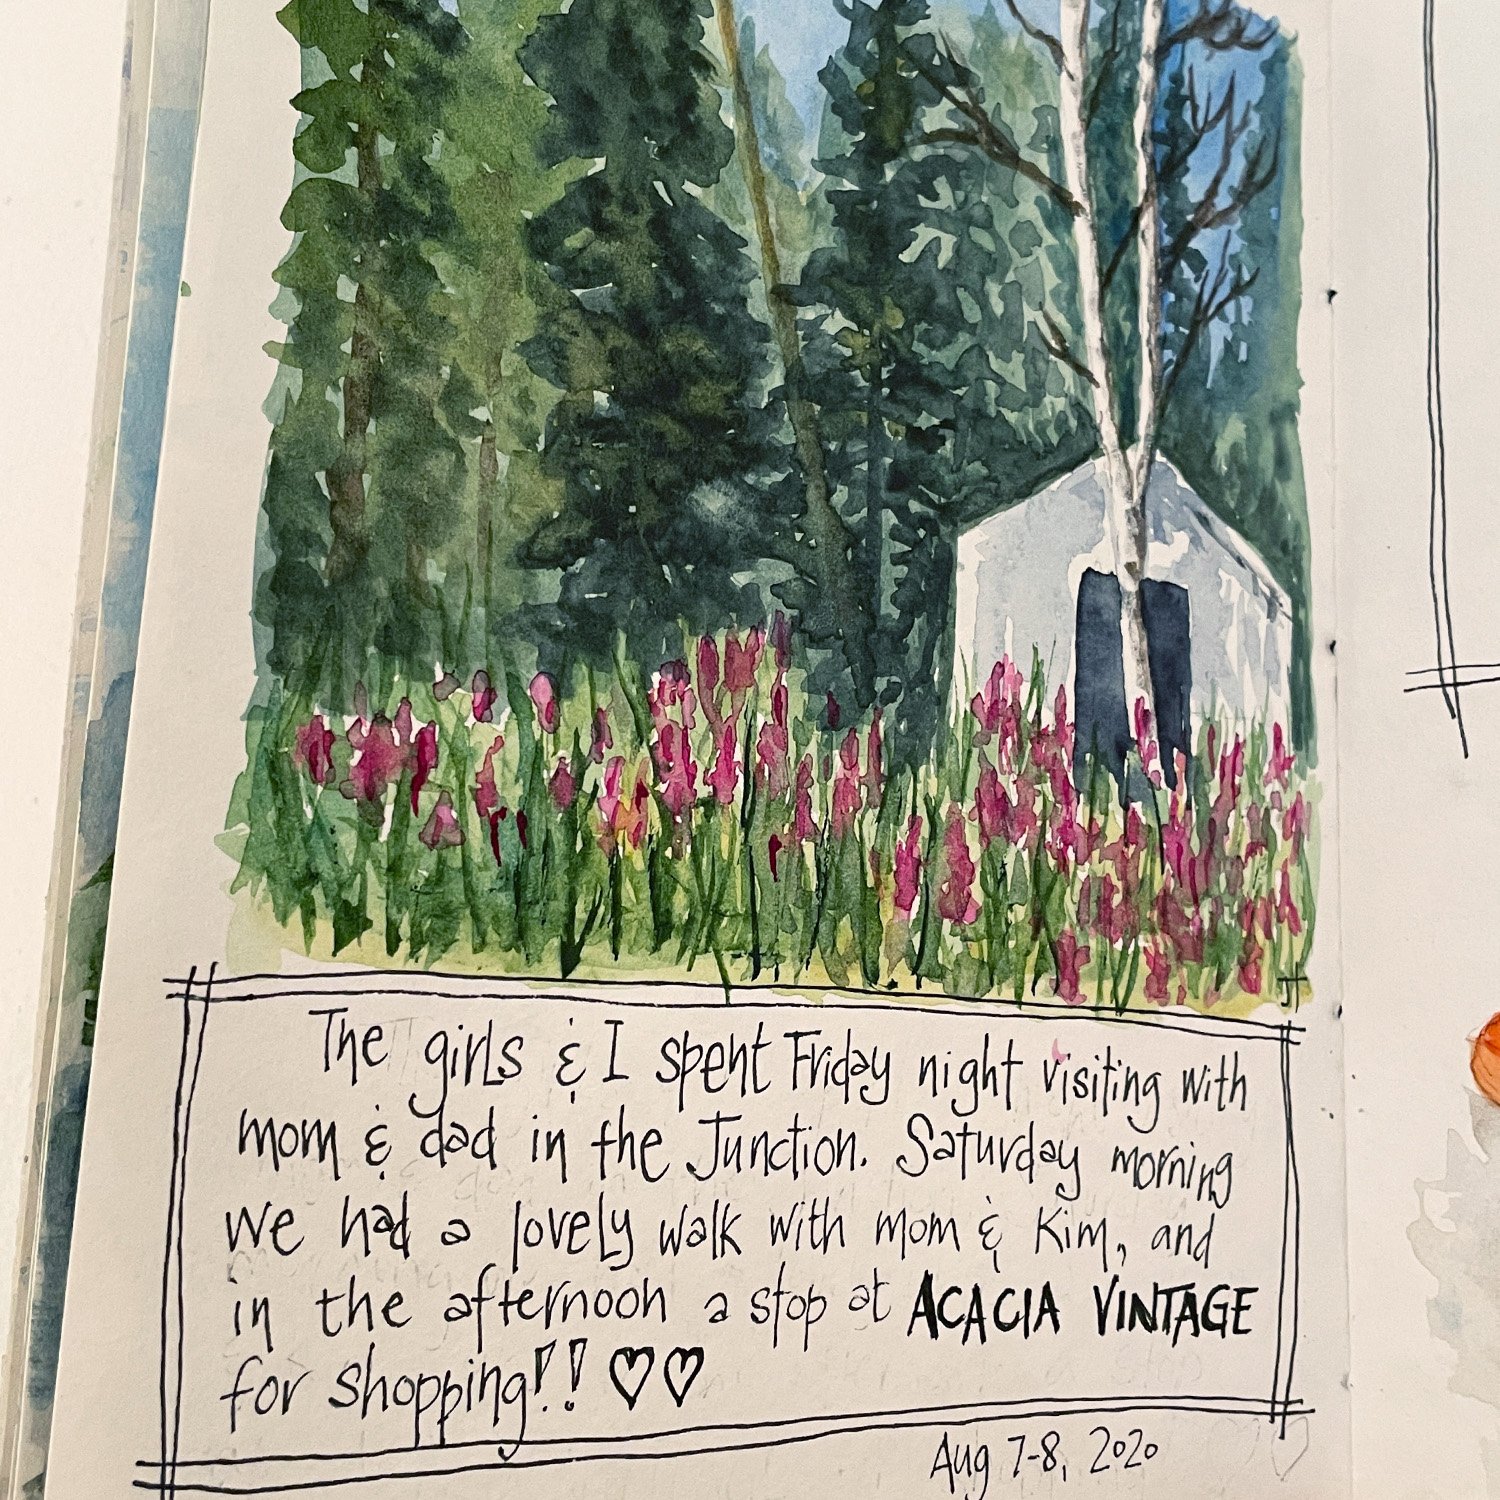 JT
The girls & I spent Friday night visiting with
mom & dad in the Junction. Saturday morning
we had a lovely walk with mom & Kim, and
in the afternoon a stop at ACACIA VINTAGE
for shopping!! ♡♡
Aug 7-8, 2020